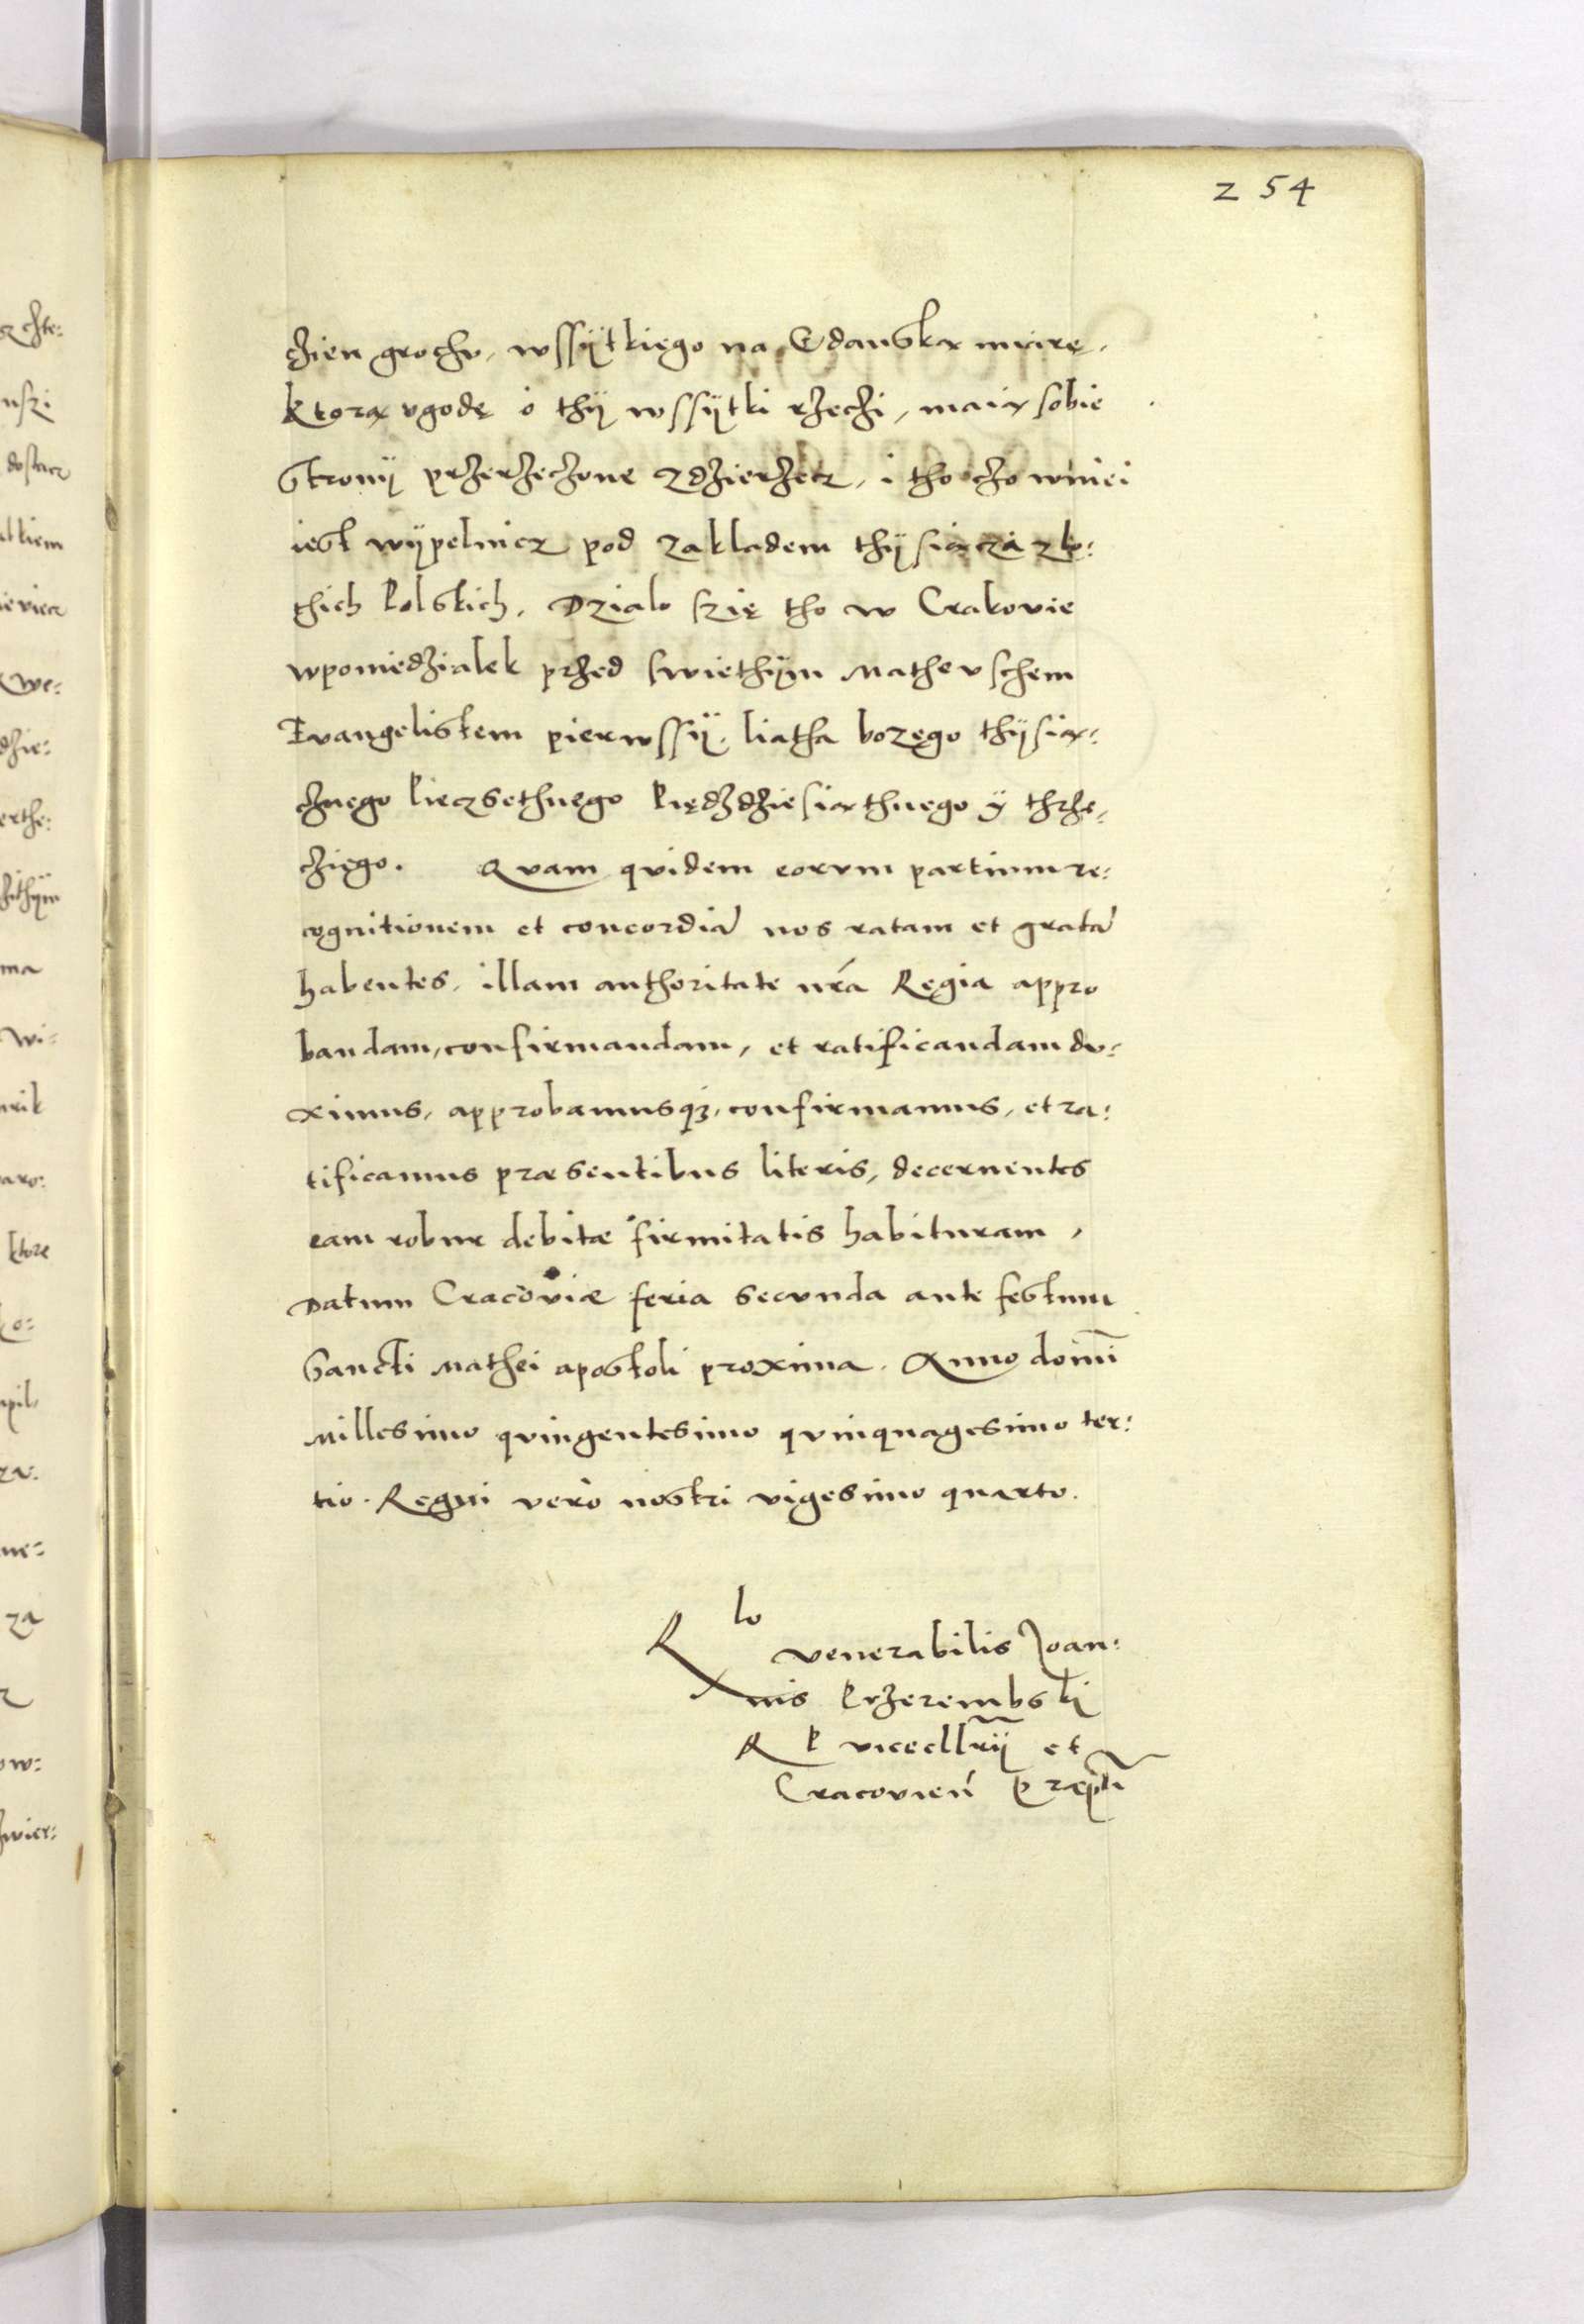 254
czien grochv, wssÿtkiego na Gdanską miarę,
Ktorą vgodę i thÿ wssÿtki rzeczi, maią sobie
stronÿ przerzeczone zdzierzecz, i tho czo wniei
iest wÿpelnicz pod zakladem thÿsiącza zlo:
thich Polskich. Dzialo szię tho w Crakovie
wponiedzialek przed swiethÿm Mathevschem
Evangelistem pierwssÿ. liatha bozęgo thÿsią:
cznego Pieczsethnego Piędzdziesiąthnego ÿ thrze,
cziego. Qvam qvidem eorvm partium re:
cognitionem et concordiā nos ratam et gratā
habentes, illam authoritate nrā Regia appro
bandam, confirmandam, et ratificandam dv:
ximus, approbamusq;, confirmamus, et ra:
tificamus præsentibus literis, decernentes
eam robur debitæ firmitatis habituram,
Datum Cracoviæ feria secvnda ante festum
Sancti Mathei apostoli proxima. Anno domī
Millesimo qvingentesimo qvinquagesimo ter:
tio. Regni verò nostri vigesimo quarto.
Rlo venerabilis Joan:
nis Przerembski
R P vicecllrÿ et
Cracovień Præpti